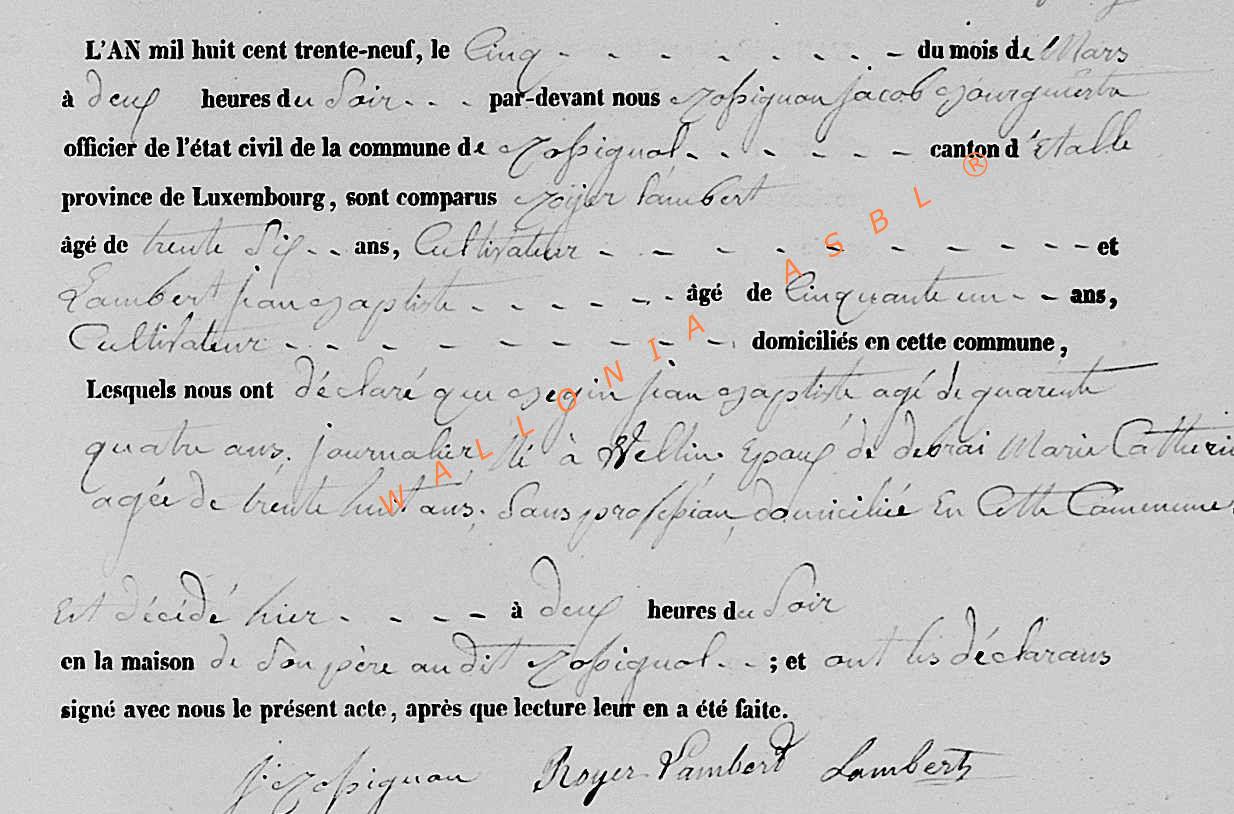 L'AN mil huit cent trente-neuf, le Cinq - - - - - - - - du mois de Mars
à deux heures du Soir - - - par-devant nous Rossignon Jacob
officier de l'état civil de la commune de Rossignol - - - - - - canton d'Etalle
province de Luxembourg, sont comparus Royer Lambert
âgé de trente Six - - ans, Cultivateur - - - - - - - - - - - et
Lambert jean Baptiste - - - - - - - âgé de Cinquante un - - ans,
Cultivateur - - - - - - - - - - - domiciliés en cette commune,
Lesquels nous ont déclaré que Begin jean Baptiste agé de quarente
quatre ans. journalier, Né à Wellin. Epoux de debrai Marie Catherin
agée de trente huit ans. Sans profession, domiciliée En Cette Commune.
Est décédé hier - - - - à deux heures du Soir
en la maison de Son père audit Rossignol - - ; et ont les déclarans
signé avec nous le présent acte, après que lecture leur en a été faite.
J. Rossignon Royer Lambert Lambert
WALLONIA ASBL ®